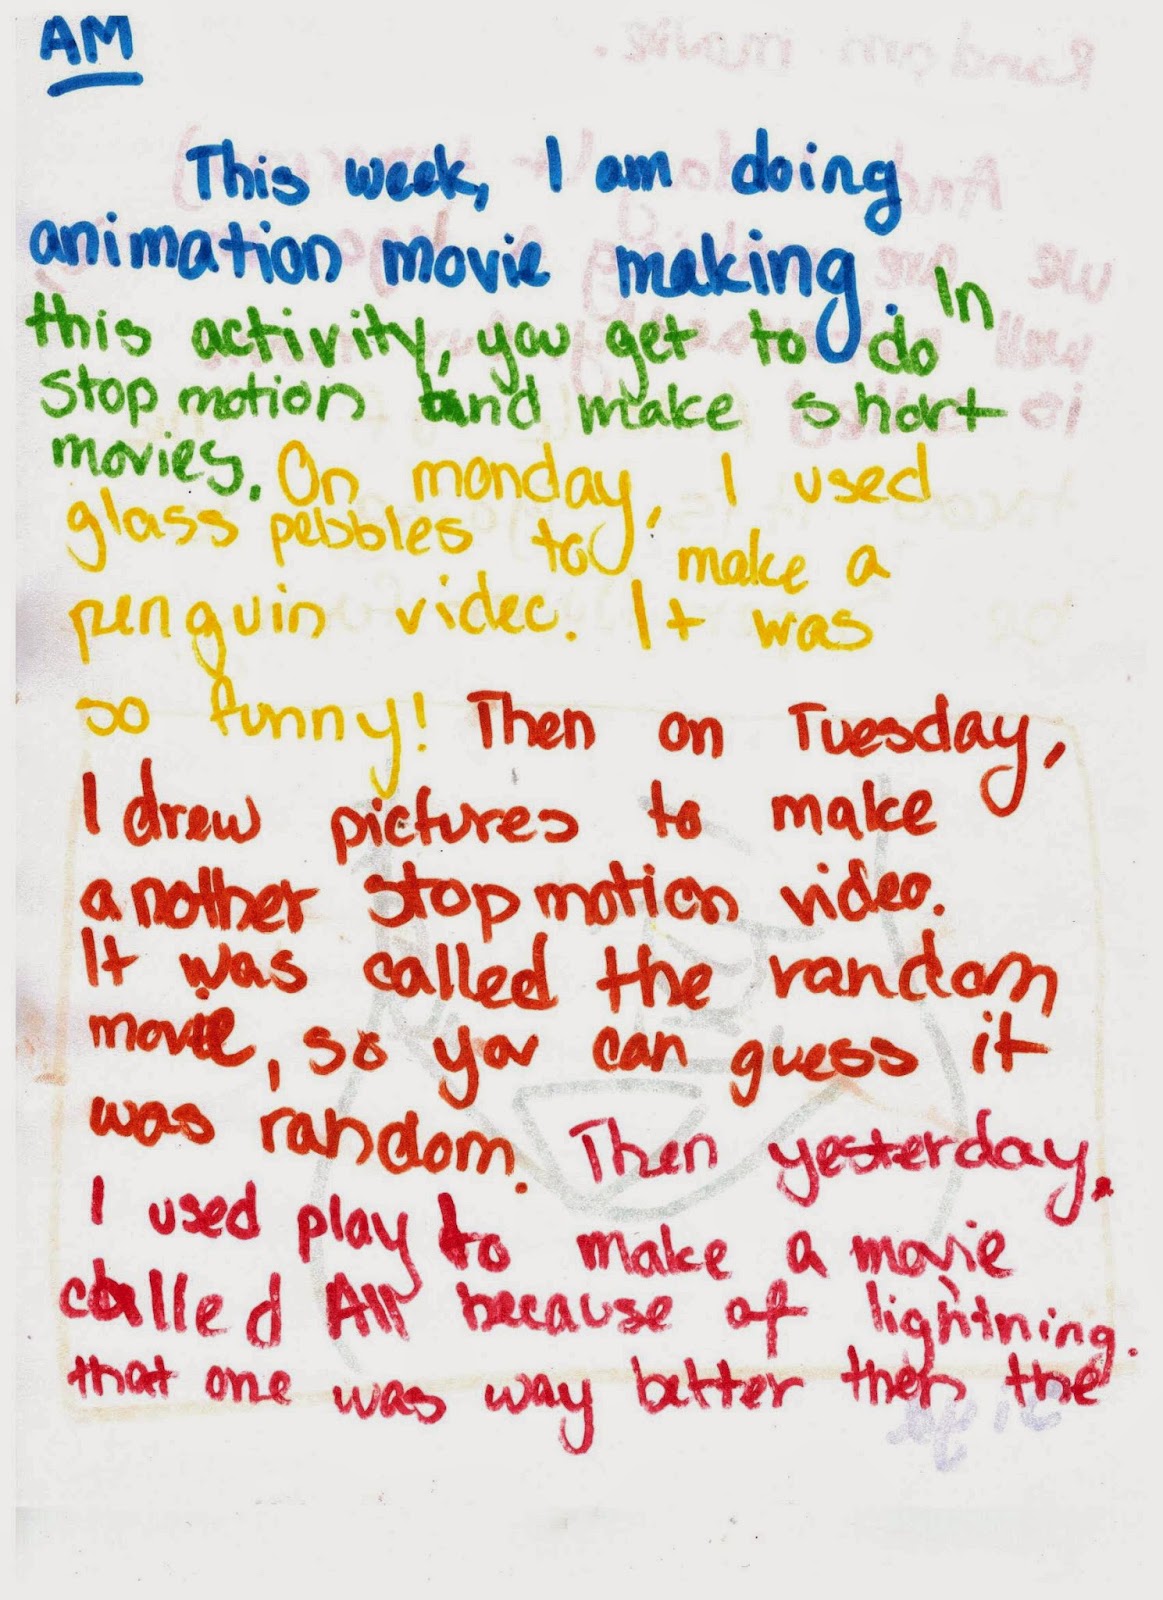 AM
This week, I am doing
animation movie making. In
this activity, you get to do
stop motion and make short
movies. On monday, I used
glass pebbles to make a
penguin video. It was
so funny! Then on Tuesday,
I drew pictures to make
another stop motion video.
It was called the random
movie, so you can guess it
was random. Then yesterday.
I used play to make a movie
called All because of lightning.
that one was way better then the